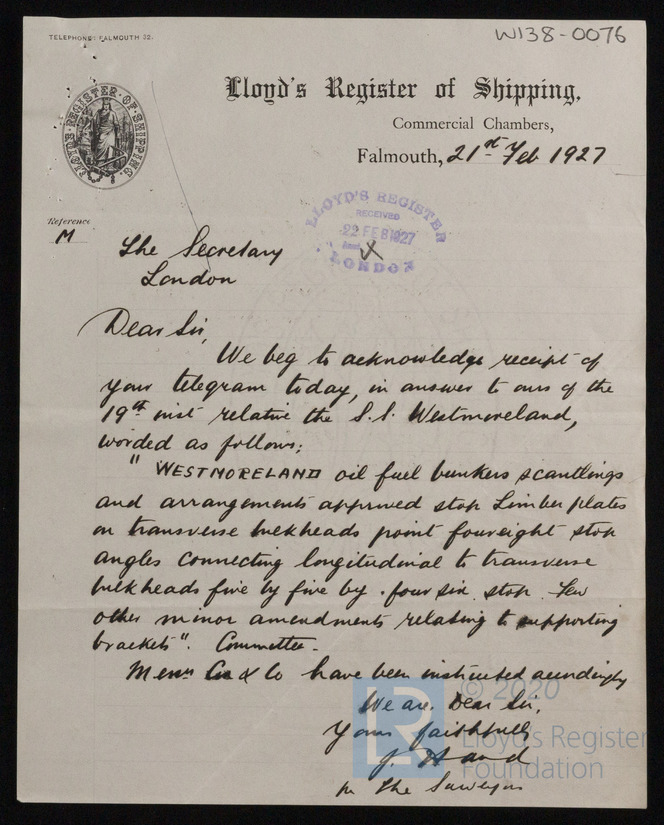 W138-0076
TELEPHONE: FALMOUTH 32.
LLOYD'S REGISTER OF SHIPPING.
Lloyd's Register of Shipping,
Commercial Chambers,
Falmouth, 21st Feb 1927
LLOYD'S REGISTER
RECEIVED
22 FEB 1927
LONDON
Reference
M
The Secretary
London
Dear Sir,
We beg to acknowledge receipt of
your telegram today, in answer to ours of the
19th inst relative the S.S. Westmoreland,
worded as follows;
" WESTMORELAND oil fuel bunkers scantlings
and arrangements approved stop Limber plates
on transverse bulkheads point foureight stop
angles connecting longitudinal to transverse
bulkheads five by five by .four six stop Few
other minor amendments relating to supporting
brackets". Committee.
& Co have been instructed accordingly
We are, Dear Sir,
Yours faithfully
J. Hand
for The Surveyors
© 2020
LR
Lloyd's Register
Foundation